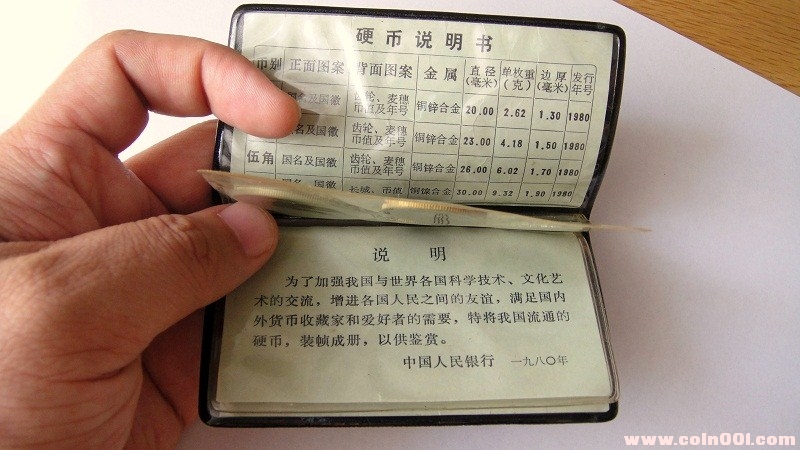 硬币说明书
币别 正面图案 背面图案 金属 直径(毫米) 单枚重(克) 边厚(毫米) 发行年号
国名及国徽 齿轮、麦穗币值及年号 铜锌合金 20.00 2.62 1.30 1980
国名及国徽 齿轮、麦穗币值及年号 铜锌合金 23.00 4.18 1.50 1980
伍角 国名及国徽 齿轮、麦穗币值及年号 铜锌合金 26.00 6.02 1.70 1980
国名及国徽 长城、币值 铜镍合金 30.00 9.32 1.90 1980
说 明
为了加强我国与世界各国科学技术、文化艺
术的交流，增进各国人民之间的友谊，满足国内
外货币收藏家和爱好者的需要，特将我国流通的
硬币，装帧成册，以供鉴赏。
中国人民银行 一九八〇年
www.coin001.com